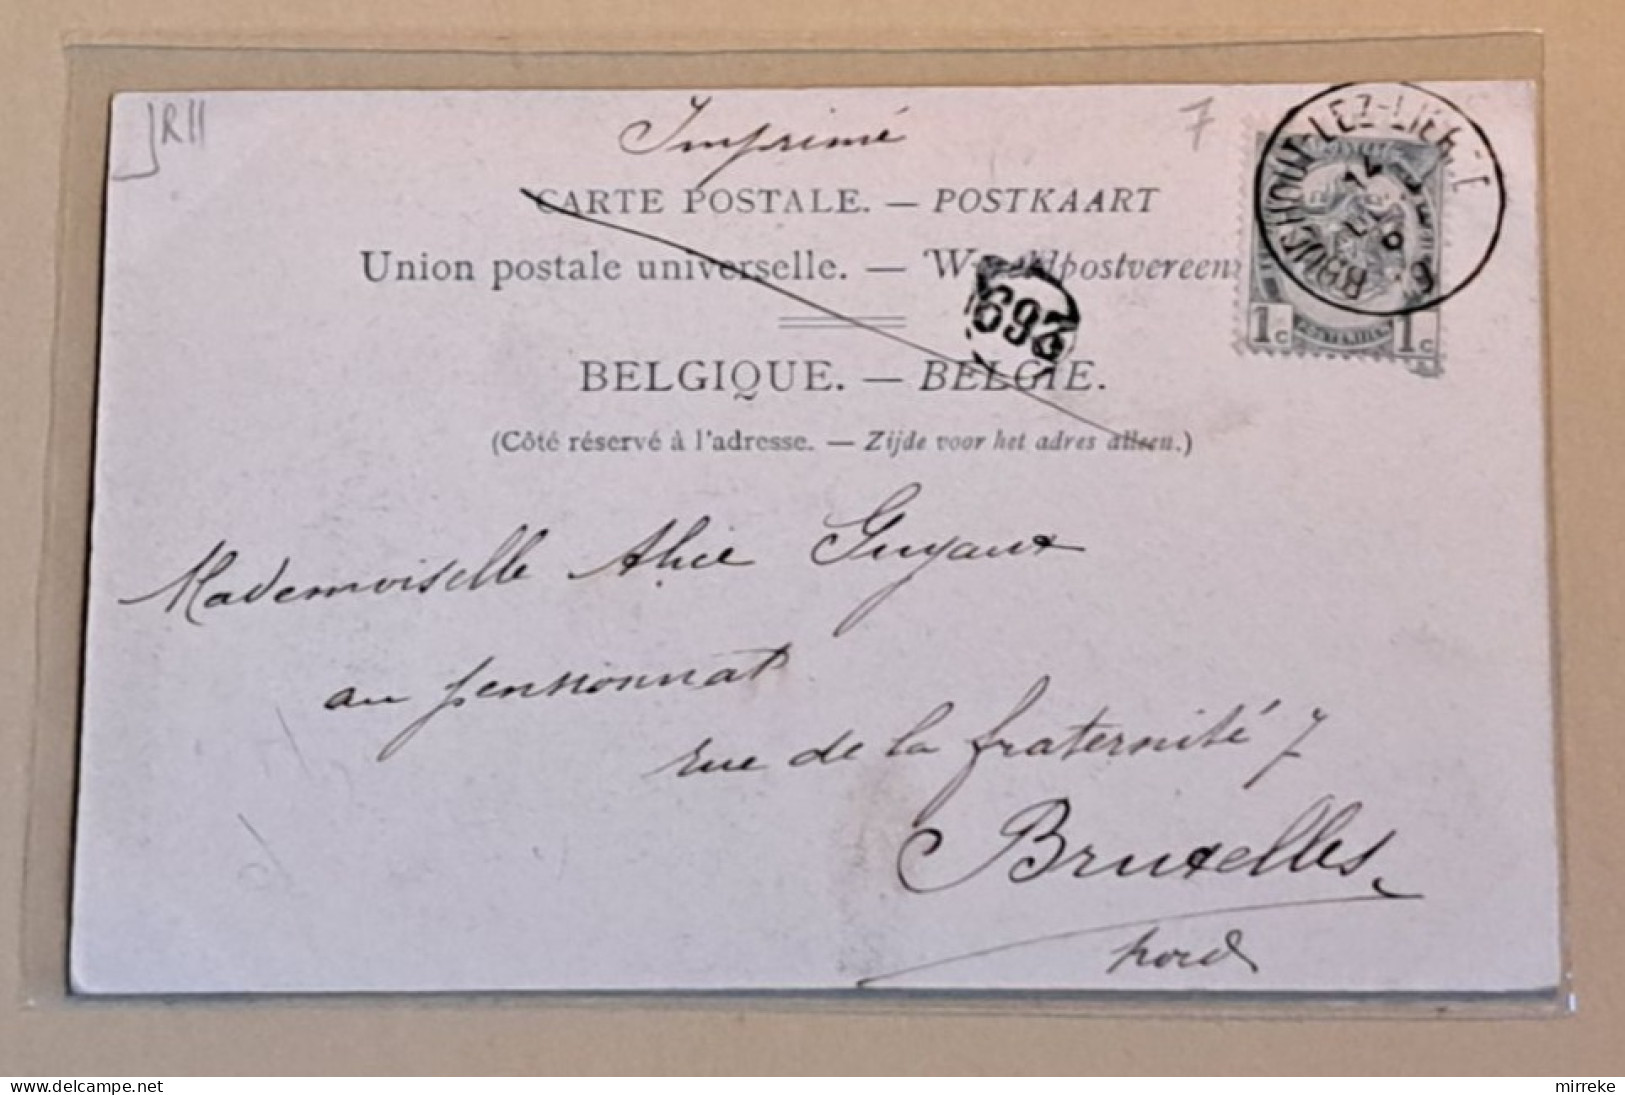 JR11
7
Imprimé
CARTE POSTALE. — POSTKAART
Union postale universelle. — Wereldpostvereen
693
BELGIQUE. — BELGIE.
(Côté réservé à l'adresse. — Zijde voor het adres alleen.)
1c 1c
Mademoiselle Alice Guyaux
au pensionnat
rue de la fraternité 7
Bruxelles
Nord
delcampe.net
mirreke